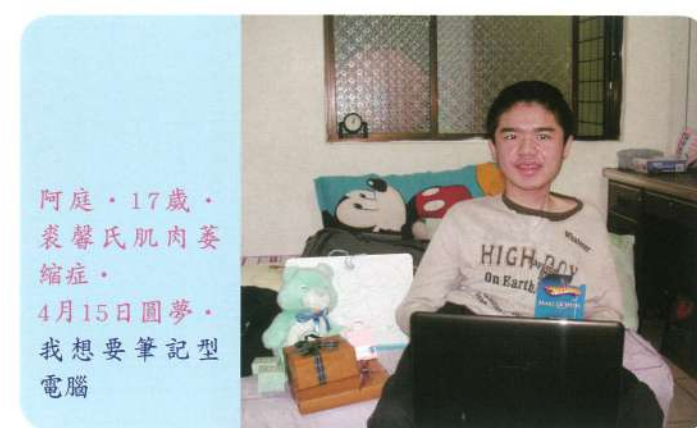 阿庭・17歲・
裘馨氏肌肉萎
縮症・
4月15日圓夢・
我想要筆記型
電腦
Whatever
HIGH BOY
On Earth